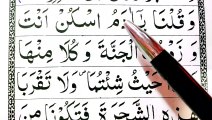 وَقُلْنَا يَاٰدَمُ اسْكُنْ اَنْتَ
وَ زَوْجُكَ الْجَنَّةَ وَكُلَا مِنْهَا
حَيْثُ شِئْتُمَا وَلَا تَقْرَبَا
هٰذِهِ الشَّجَرَةَ فَتَكُوْنَا مِنَ